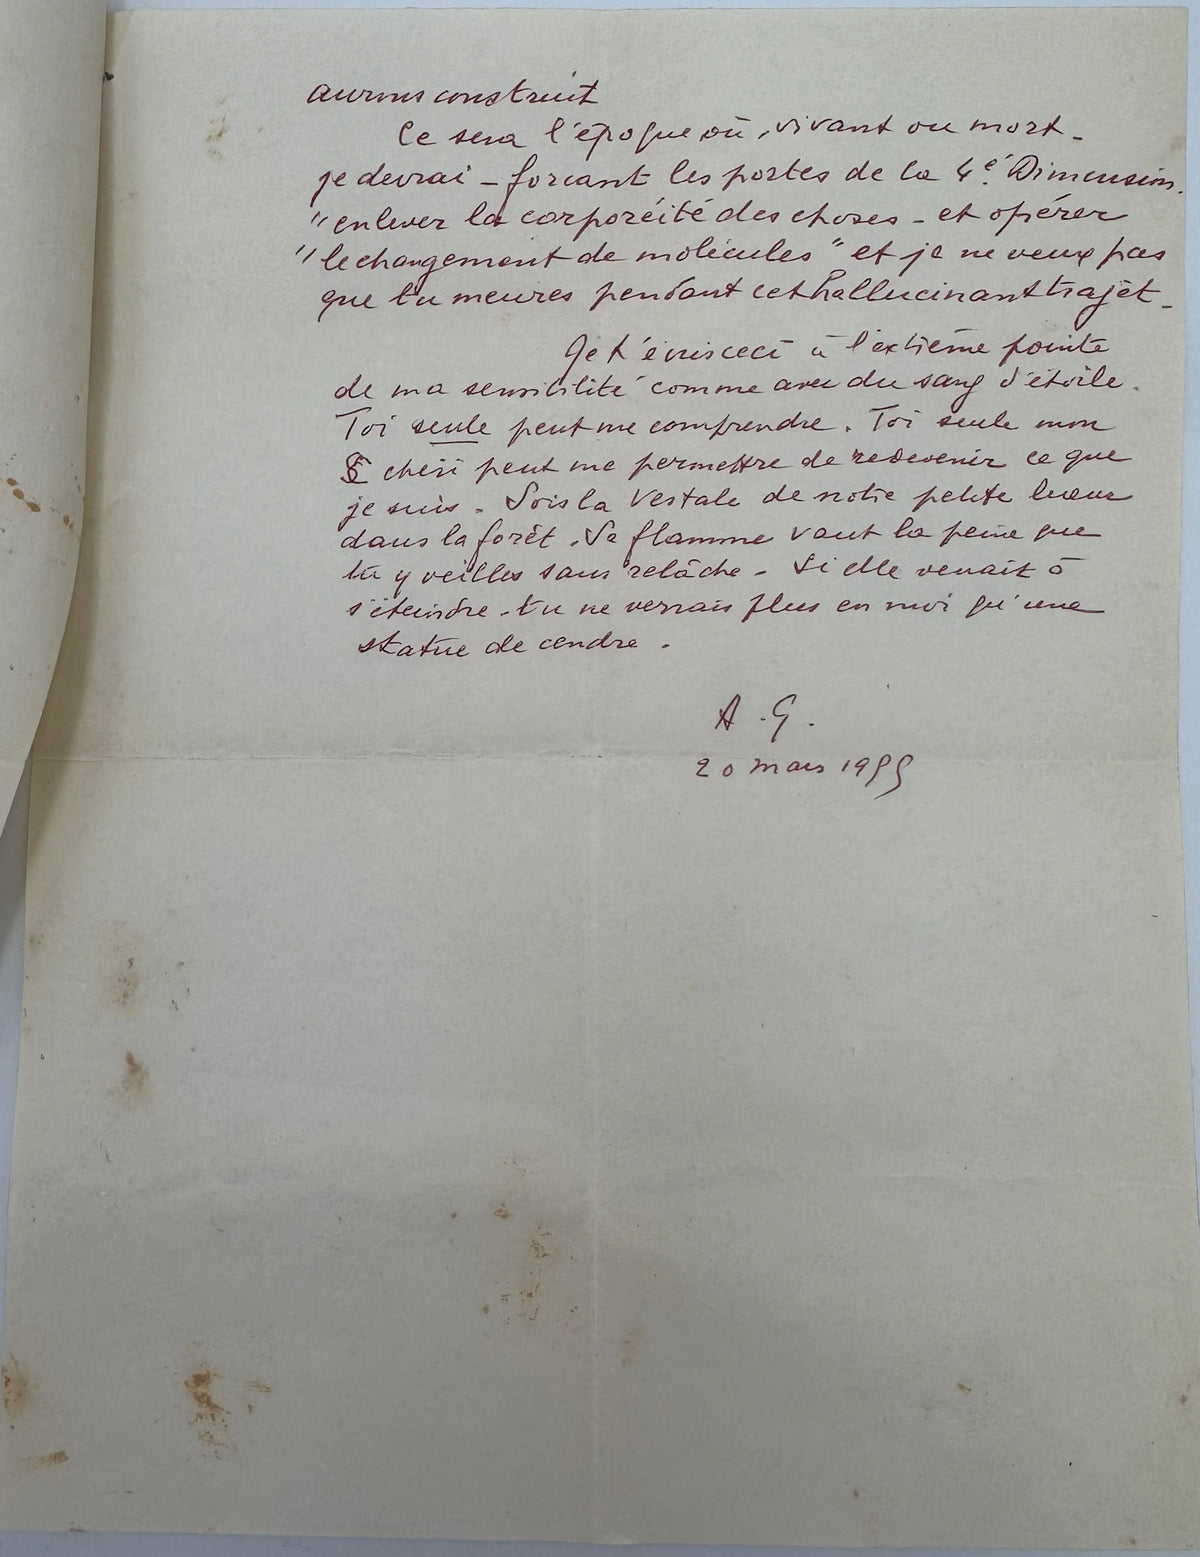 aurons construit
Ce sera l'époque où, vivant ou mort -
je devrai - forçant les portes de la 4e. Dimension.
"enlever la corporéité des choses - et opérer
"le changement de molécules" et je ne veux pas
que tu meures pendant cet hallucinant trajet -
Je t'écris ceci à l'extrême pointe
de ma sensibilité comme avec du sang d'étoile.
Toi seule peut me comprendre. Toi seule mon
chéri peut me permettre de redevenir ce que
je suis. Sois la Vestale de notre petite lueur
dans la forêt. Sa flamme vaut la peine que
tu y veilles sans relâche - Si elle venait à
s'éteindre - tu ne verrais plus en moi qu'une
statue de cendre.
A. G.
20 mars 1955